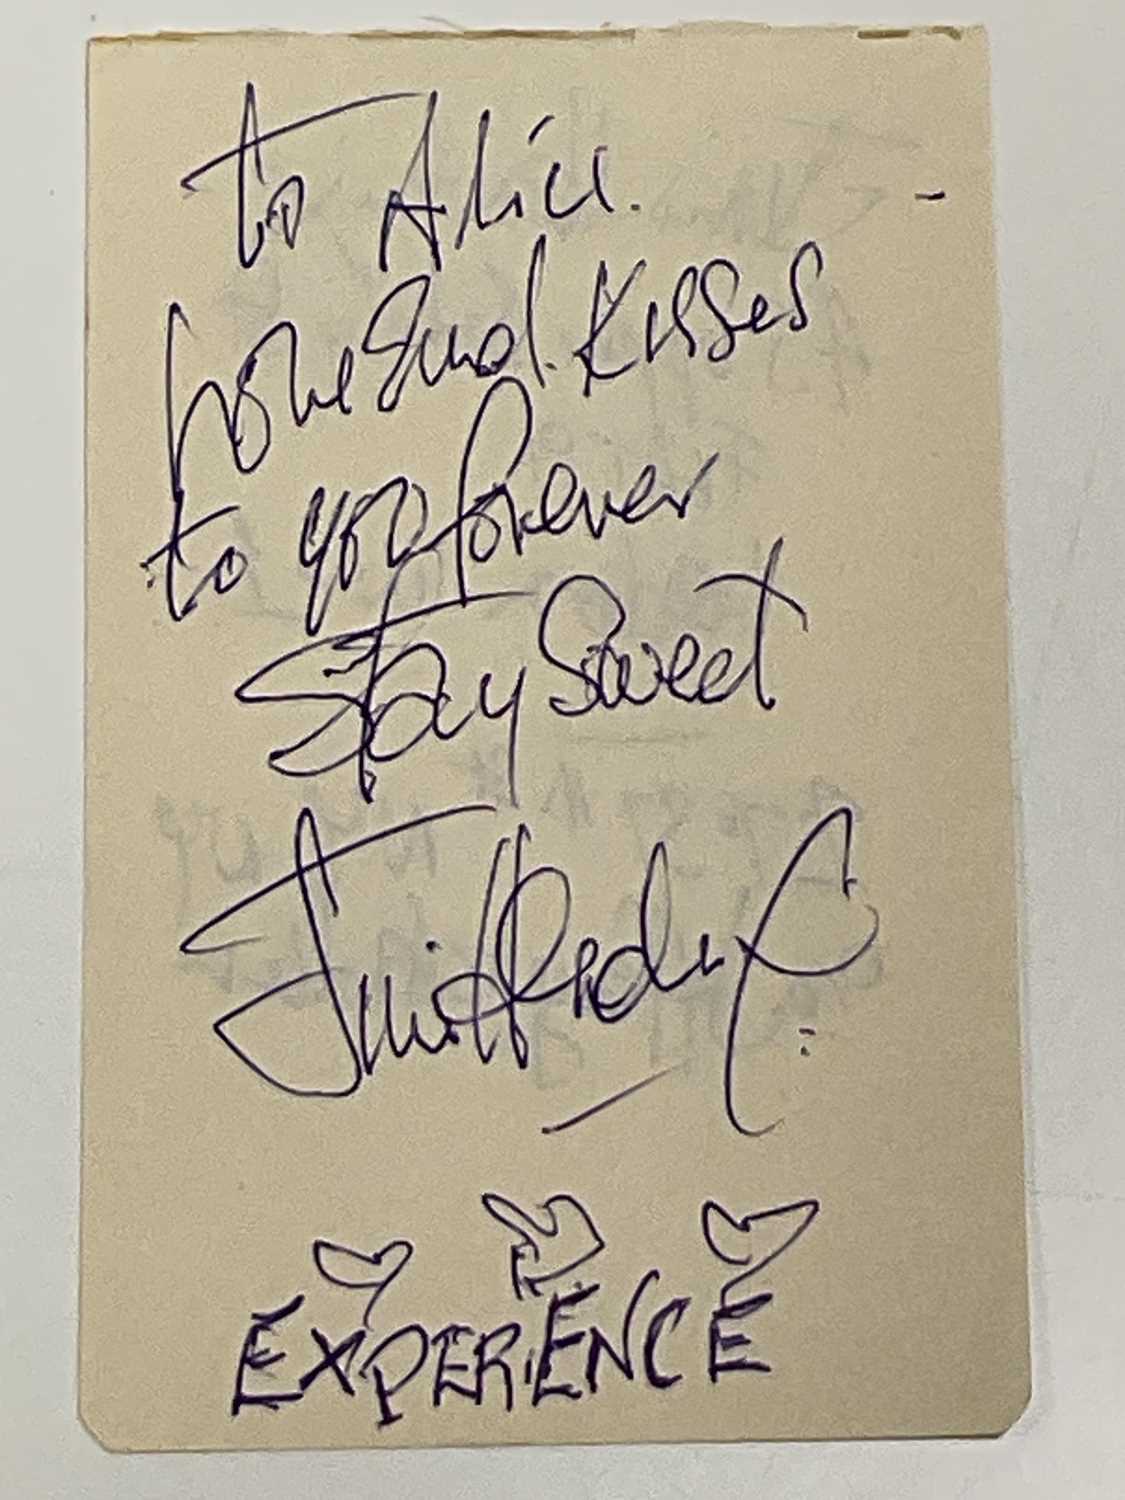 to Alice.
Love and Kisses
to you forever
Stay Sweet
Jimi Hendrix
EXPERIENCE